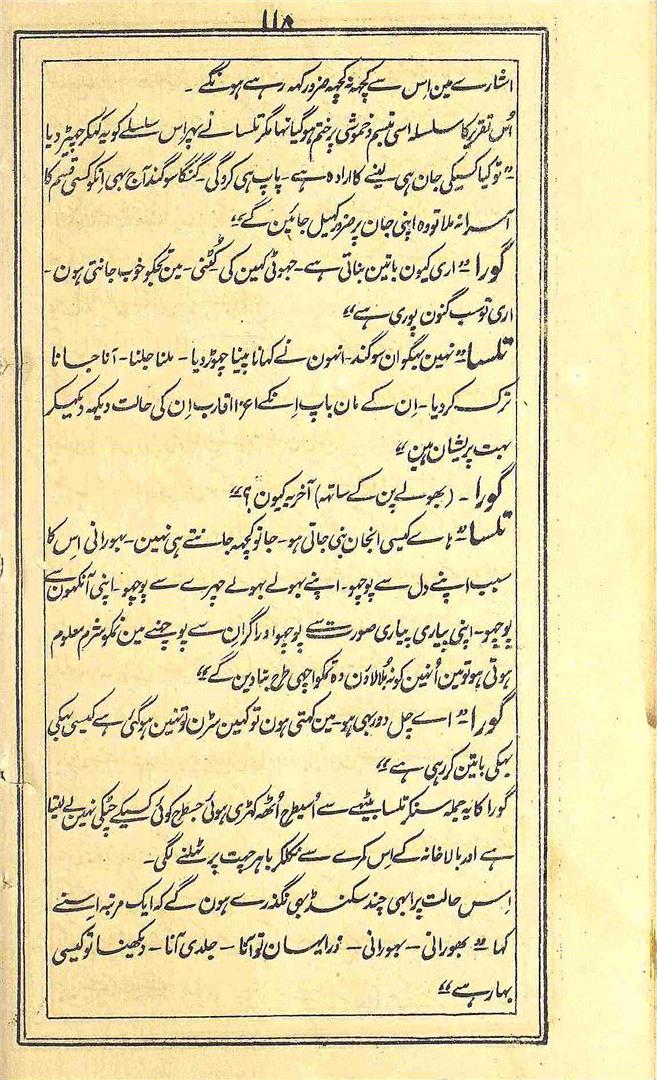 ۱۱۵
اشارے مین اِس سے کچھ نہ کچھ ضرور کہہ رہے ہونگے ۔
اُس تقریر کا سلسلہ اسی تبسم و خموشی پر ختم ہوگیا تہا مگر تلسا نے پہر اس سلسلے کو یہ کہکر چہیڑ دیا
"تو کیا کسیکی جان ہی لینے کا ارادہ ہے - پاپ ہی کروگی - گنگا سوگند آج بھی اِنکو کسی قسم کا
آسرا نہ ملا تو وہ اپنی جان پر ضرور کہیل جائین گے"
گورا "اری کیون باتین بناتی ہے - جہوٹی کہین کی کُٹنی - مین تجکو خوب جانتی ہون -
اری تو سب گنون پوری ہے"
تلسا "نہین بہگوان سوگند - انہون نے کہانا پینا چہوڑ دیا - ملنا جلنا - آنا جانا
ترک کر دیا - اِن کے مان باپ اِنکے اعزا اقارب اِن کی حالت دیکہہ دیکہکر
بہت پریشان ہین"
گورا - (بھولے پن کے ساتھ) آخر یہ کیون ؟"
تلسا "ہاے کیسی انجان بنی جاتی ہو - جانو کچھ جانتے ہی نہین - بہورانی اِس کا
سبب اپنے دل سے پوچہو - اپنے بہولے بہولے چہرے سے پوچہو - اپنی آنکھون سے
پوچہو - اپنی پیاری پیاری صورت سے پوچہو اور اگر اِن سے پوچہنے مین تمکو شرم معلوم
ہوتی ہو تو مین اُنہین کو نہ بُلا لاؤن وہ تمکو اچہی طرح بتا دین گے"
گورا "اے چل دور بہی ہو - مین کہتی ہون تو کہین سڑن تو نہین ہوگئی ہے کیسی بہکی
بہکی باتین کر رہی ہے"
گورا کا یہ جملہ سنکر تلسا بیٹہے سے اُسیطرح اُٹھ کہڑی ہوئی جسطرح کوئی کسیکے چٹکی نہین لے لیتا
ہے اور بالا خانہ کے اِس کمرے سے نکلکر باہر چہت پر ٹہلنے لگی ۔
اِس حالت پر ابہی چند سکنڈ بھی نگذرے ہون گے کہ ایک مرتبہ اِسنے
کہا "بھورانی - بہورانی - ذرا یہان تو آنا - جلدی آنا - دیکہنا تو کیسی
بہار ہے"